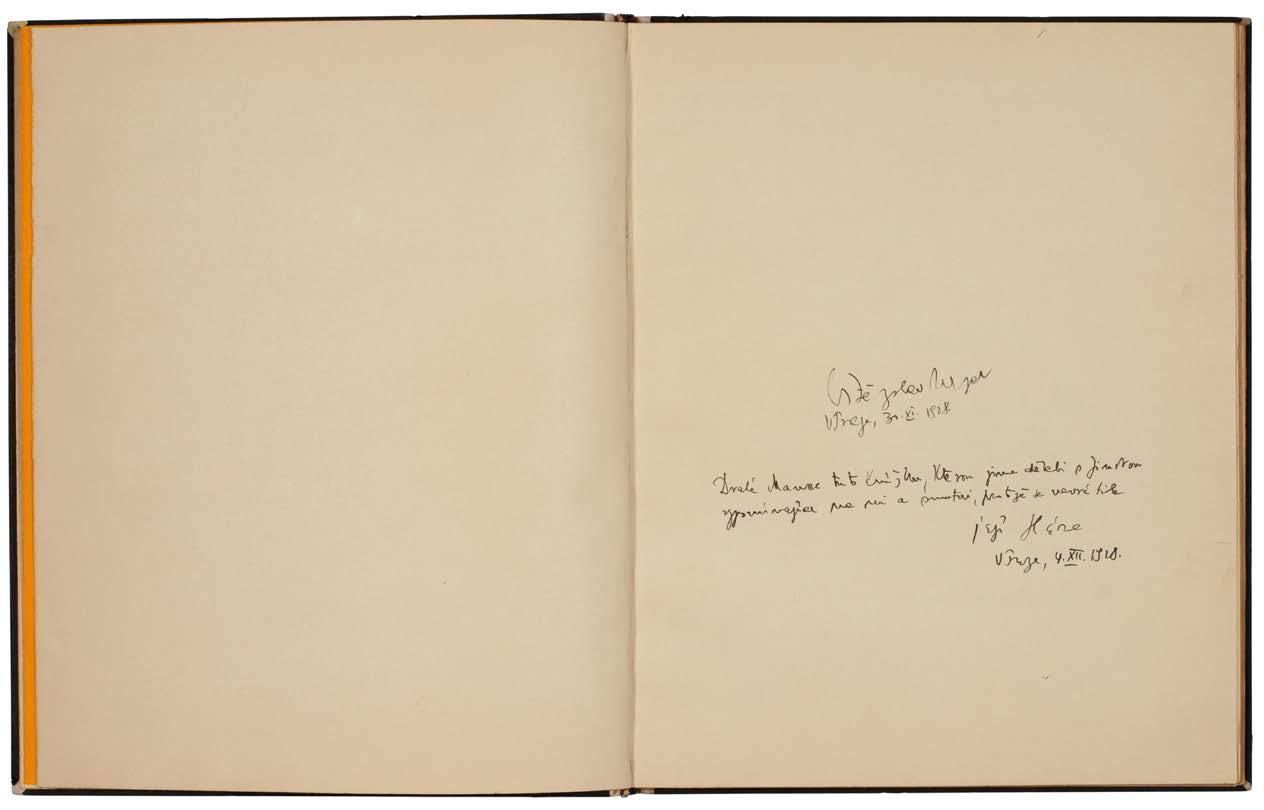 Vítězslav Nezval
V Praze, 30. XI. 1928
Drahé Mance tuto knížku, kterou jsme dělali s Jindrou
vzpomínajíce na ni a smutni, protože se nevrátila
její
V Praze, 4. XII. 1928.